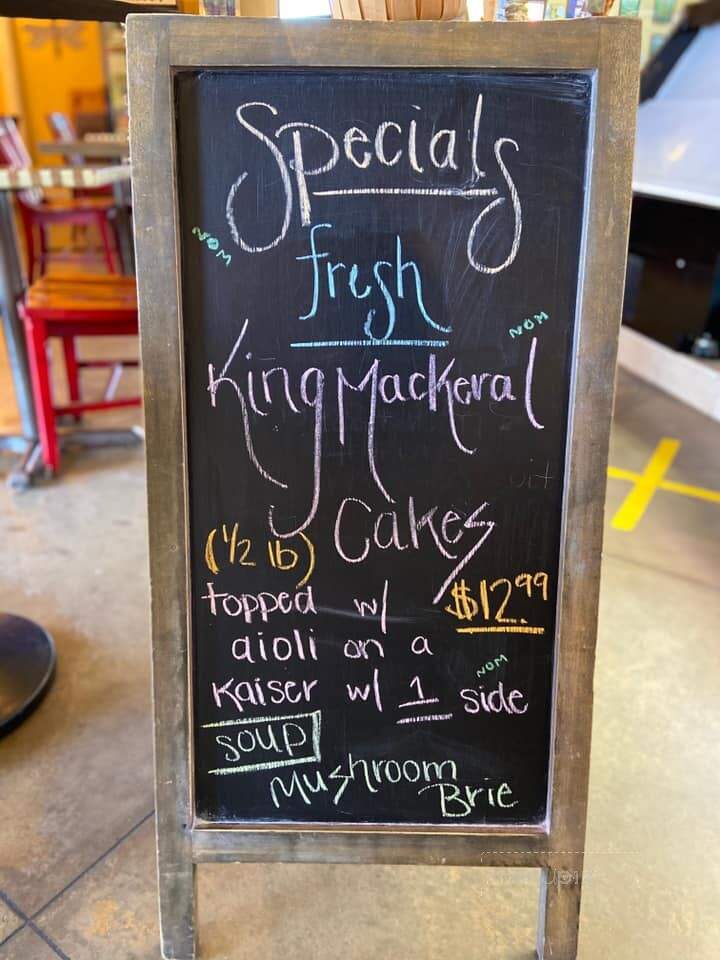 Specials
NOM
fresh
NOM
King Mackeral
Cakes
(1/2 lb)
$12.99
topped w/
aioli on a
NOM
Kaiser w/ 1 side
soup
Mushroom
Brie